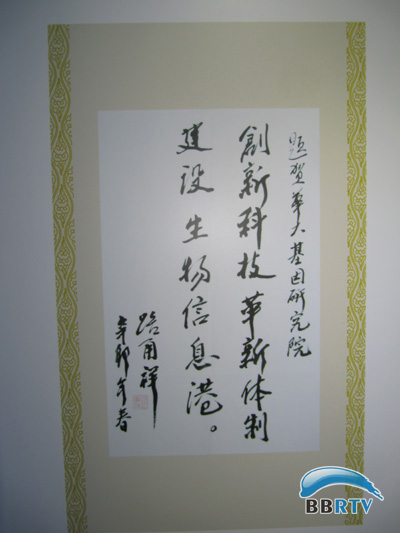 题贺华大基因研究院
創新科技革新体制
建设生物信息港。
路甬祥
辛卯年春
BBRTV